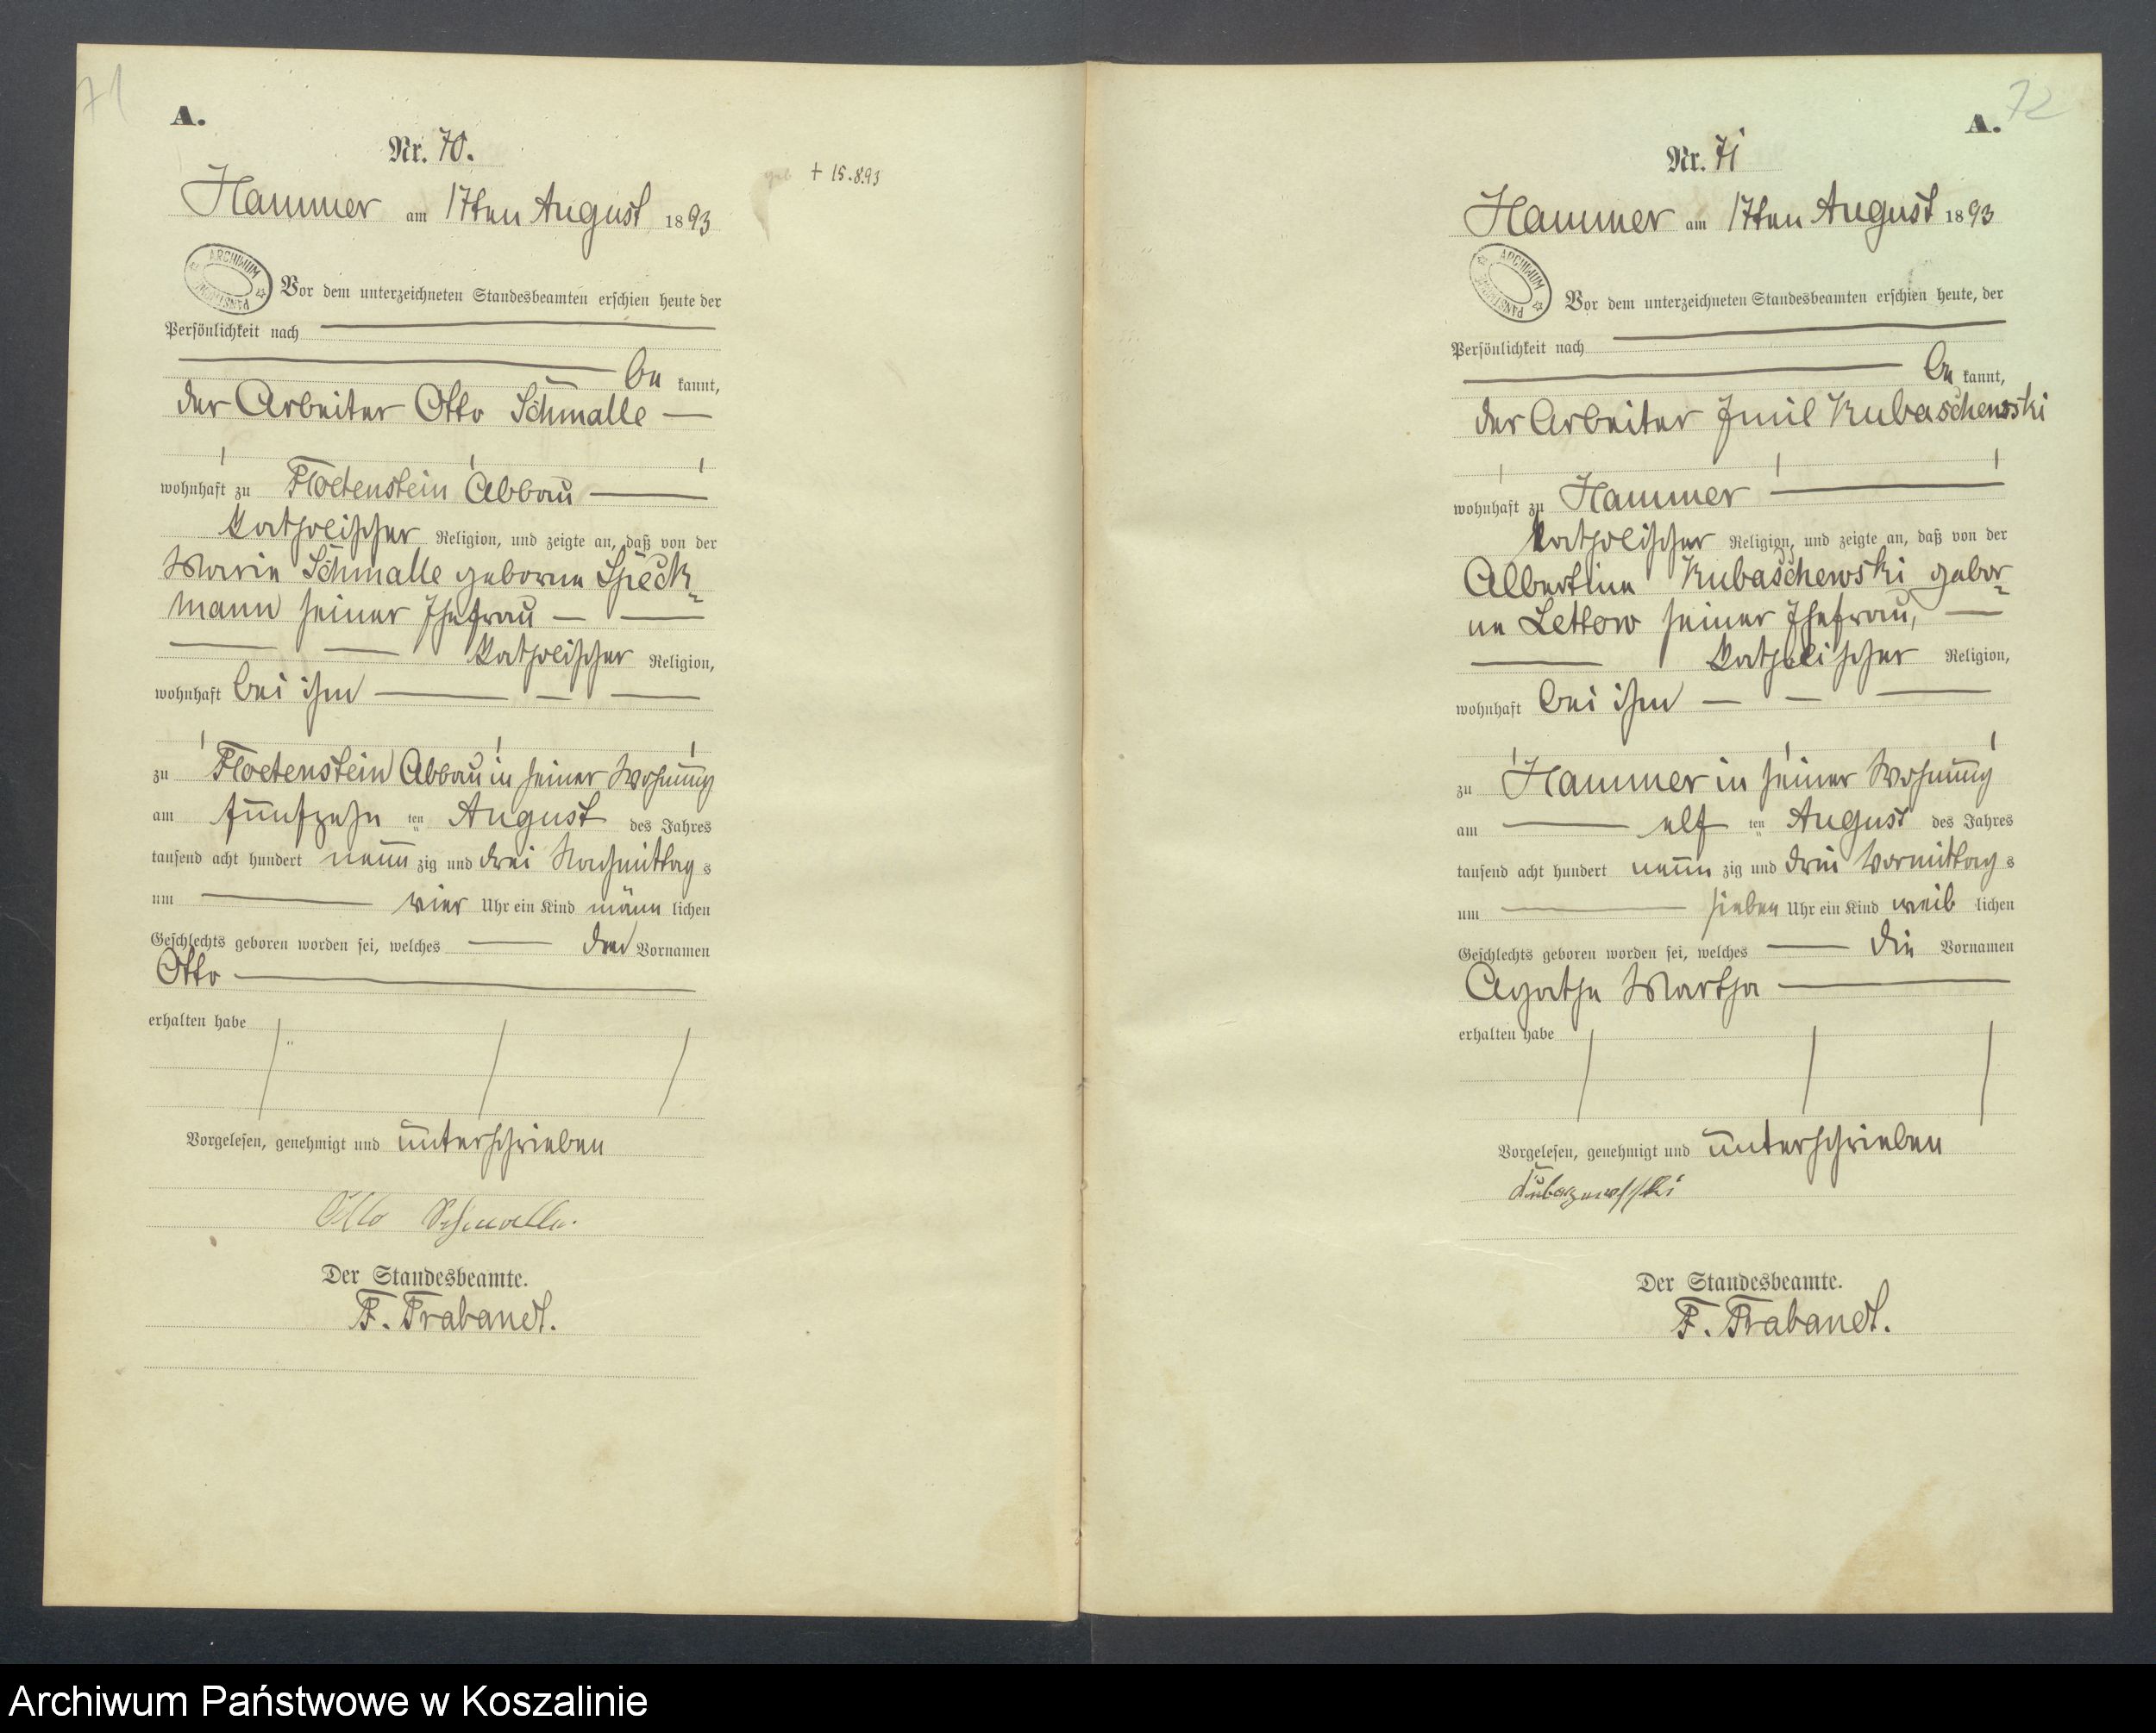 71
A.
Nr. 70.
Hammer am 17ten August 1893
+ 15.8.93
ARCHIWUM PAŃSTWOWE
Vor dem unterzeichneten Standesbeamten erschien heute der
Persönlichkeit nach
be kannt,
der Arbeiter Otto Schmalle
wohnhaft zu Floetenstein Abbau
katholischer Religion, und zeigte an, daß von der
Marie Schmalle geborne Speck-
mann seiner Ehefrau
katholischer Religion,
wohnhaft bei ihm
zu Floetenstein Abbau in seiner Wohnung
am fünfzehn ten August des Jahres
tausend acht hundert neun zig und drei Nachmittag s
um vier Uhr ein Kind männ lichen
Geschlechts geboren worden sei, welches den Vornamen
Otto
erhalten habe
Vorgelesen, genehmigt und unterschrieben
Otto Schmalle.
Der Standesbeamte.
F. Trabandt.
72
A.
Nr. 71
Hammer am 17ten August 1893
ARCHIWUM PAŃSTWOWE
Vor dem unterzeichneten Standesbeamten erschien heute, der
Persönlichkeit nach
be kannt,
der Arbeiter Emil Kubaschewski
wohnhaft zu Hammer
katholischer Religion, und zeigte an, daß von der
Albertine Kubaschewski gebor-
ne Lettow seiner Ehefrau,
katholischer Religion,
wohnhaft bei ihm
zu Hammer in seiner Wohnung
am elf ten August des Jahres
tausend acht hundert neun zig und drei Vormittag s
um sieben Uhr ein Kind weib lichen
Geschlechts geboren worden sei, welches die Vornamen
Agathe Martha
erhalten habe
Vorgelesen, genehmigt und unterschrieben
Der Standesbeamte.
F. Trabandt.
Archiwum Państwowe w Koszalinie